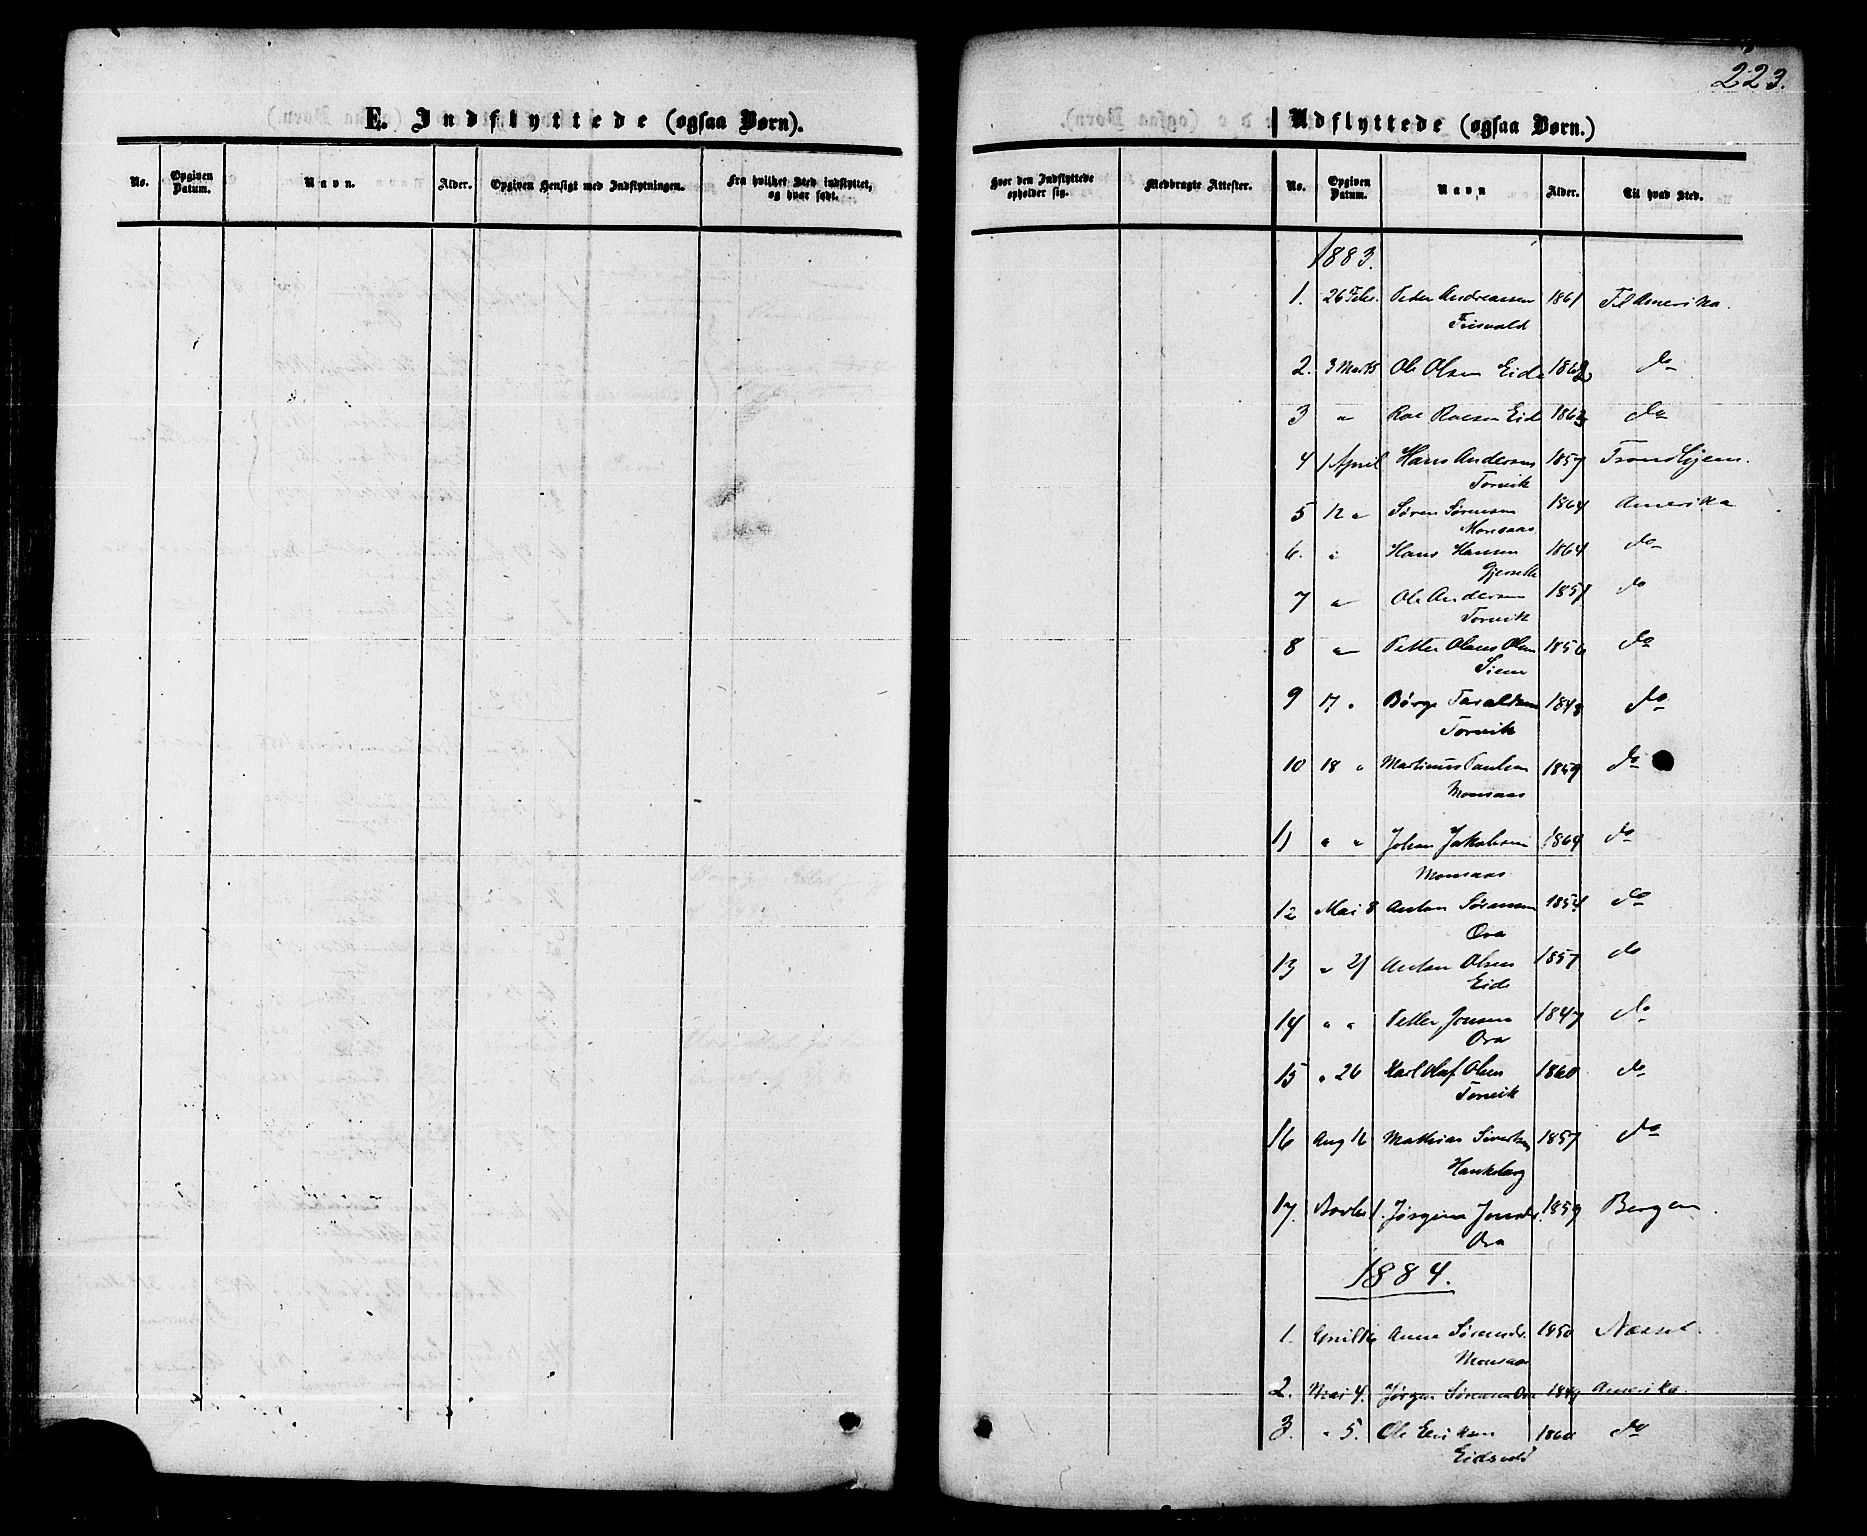 223.
E. Indflyttede (ogsaa Børn).
Udflyttede (ogsaa Børn.)
No.
Opgiven Datum.
Navn.
Alder.
Opgiven Hensigt med Indflytningen.
Fra hvilket Sted indflyttet, og hvor født.
Hvor den Indflyttede opholder sig.
Medbragte Attester.
No.
Opgiven Datum.
Navn
Alder.
Til hvad Sted.
1883.
1. 26 Febr. Peder Andreassen 1861 Til Amerika.
Frisvold
2. 3 Marts Ole Olsen Eide 1862 do
3 " Roe Roesen Eide 1863 do
4 1 April Hans Andersen 1857 Trondhjem.
Torvik
5 12 " Søren Sørensen 1864 Amerika
Monsaas
6. " Hans Hansen 1864 do
7 " Ole Andersen 1858 do
Torvik
8 " Petter Olaus Olsen 1856 do
9 17 " Børge Taraldsen 1848 do
Torvik
10 18 " Martinus Paulsen 1859 do
Monsaas
11 " " Johan Jakobsen 1864 do
Monsaas
12 Mai 8 Anton Sørensen 1854 do
Ora
13 " 21 Anton Olsen 1857 do
Eide
14 " " Petter Jonsen 1847 do
Ora
15 " 26 Karl Olaf Olsen 1860 do
Torvik
16 Aug 16 Mathias Sivertsen 1857 do
17. Novbr 1. Jørgine Jonsdr. 1859 Bergen.
Ora
1884.
1. April Anne Sørensdr. 1850 Nesset.
Monsaas
2. Mai 4. Jørgen Sørensen Ora 1849 Amerika.
3. " 5. Ole Eriksen 1860 do
Eidsvold